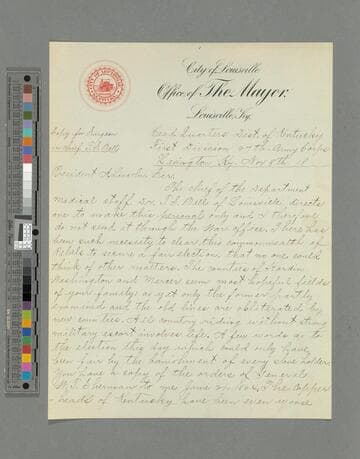 City of Louisville
Office of The Mayor.
Louisville, Ky.
Copy for Surgeon
in Chief T. S. Bell
Head Quarters Dist. of Kentucky
First Division Army Corps
Lexington Ky. Nov 8th 18
President A Lincoln, Dear Sir.
The chief of the Department
medical staff Dr. T. S. Bell of Louisville directs
me to make this personal only and I
do not send it through the War office. There has
been such necessity to clear this commonwealth of
Rebels to secure a fair election, that no one could
think of other matters. The counties of Hardin
Washington and Mercer seem most hopeful fields
of your family; as yet only the former partly
examined and the old lines are obliterated by
new counties. All country riding without strong
military escort involves life. A few words as to
the election this day which could only have
been fair by the banishment of every slave holder.
You have a copy of the orders of General
W. T. Sherman to me June The Copper
-heads of Kentucky have been even worse